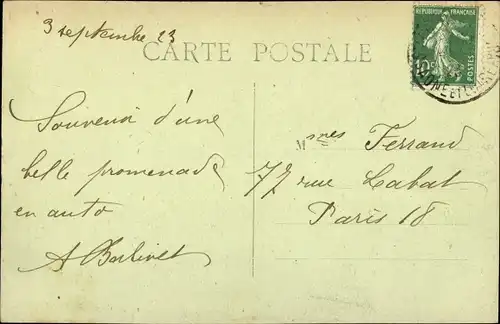 3 septembre 23
CARTE POSTALE
REPUBLIQUE FRANÇAISE
10c POSTES
Souvenir d'une
belle promenade
en auto
A Barlivet
Mmes Ferrand
77 rue Labat
Paris 18